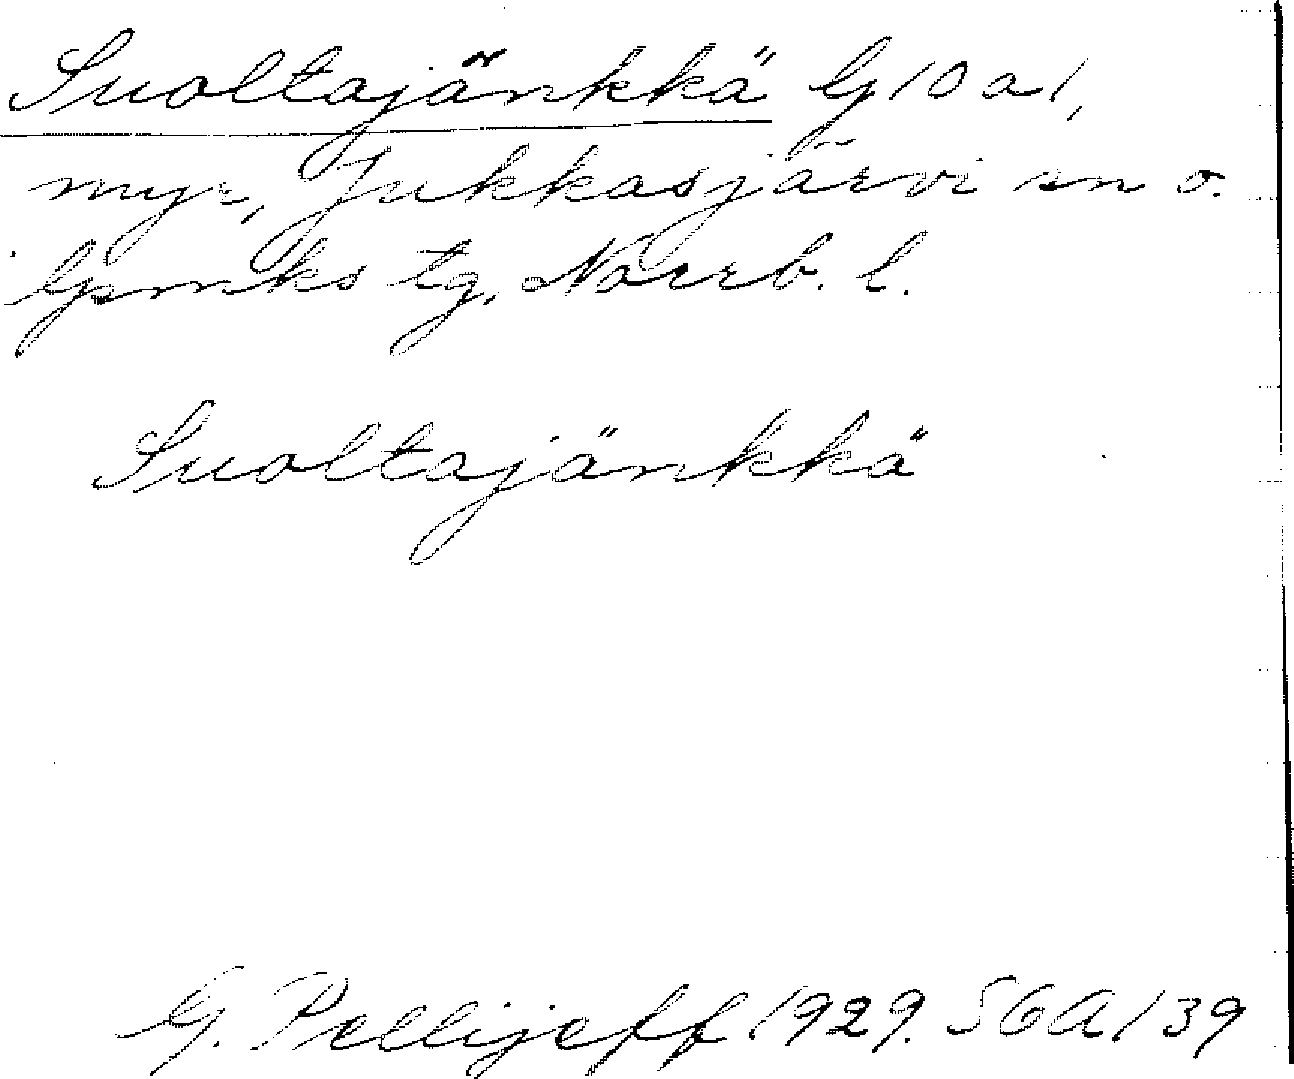 Suoltajänkkä G 10 a 1,
myr, Jukkasjärvi sn o.
Gmks tg, Norrb. l.
Suoltajänkkä
G. Pellijeff. 1929. SGA 139